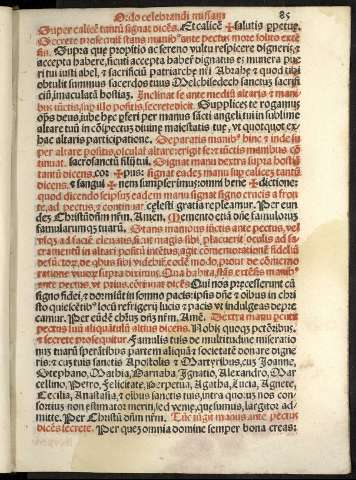 Ordo celebrandi missam 85
Super calicē tantū signat dicēs. Et calicē ✠ salutis ꝑpetue.
Secrete prosequit stans manibꝰ ante pectus more solito extē
sis. Supra que propitio ac sereno vultu respicere digneris: ⁊
accepta habere, sicuti accepta habere dignatus es munera pue
ri tui iusti abel, ⁊ sacrificiū patriarche nr̄i Abrahe: ⁊ quod tibi
obtulit summus sacerdos tuus Melchisedech sanctum sacrifi
ciū, immaculatā hostiā. Inclinat se ante mediū altaris ⁊ mani
bus iūctis, suꝑ illo positis, secrete dicit. Supplices te rogamus
oꝑs deus, iube hec ꝑferri per manus sācti angeli tui in sublime
altare tuū in cōspectu diuine maiestatis tue, vt quotquot ex
hac altaris participatione. Separatis manibꝰ hinc ⁊ inde su
per altare positis, osculat altare: erigit se ⁊ iūctis manibus cō
tinuat. sacrosanctū filij tui. Signat manu dextra supra hostiā
tantū dicens. cor ✠ pus: signat eadez manu sup calicez tantū
dicens. ⁊ sangui ✠ nem sumpserimus: omni bene ✠ dictione:
quod dicendo seipsum eadem manu signat signo crucis a fron
te, ad pectus, ⁊ continuat celesti gratia repleamur. Per eun
dez Christū dn̄m nr̄m. Amen. Memento etiā dn̄e famulorum
famularumqꝫ tuarū. Stans manibus iunctis ante pectus, vel
vsqꝫ ad faciē eleuatis, sicut magis sibi placuerit oculis ad sa
cramentū in altari positū intentus, agit cōmemorationē fideliū
defūctorū, de qbus sibi videbit, eodē modo, prout de cōmemo
ratione viuorū supra diximus. Qua habita, stās extēsis manibꝰ
ante pectus, vt prius, cōtinuat dicēs Qui nos precesserunt cū
signo fidei, ⁊ dormiūt in somno pacis: ipsis dn̄e ⁊ oībus in chri
sto quiescētibꝰ locū refrigerij lucis ⁊ pacis vt indulgeas depre
camur. Per eūdē chr̄m dn̄m nr̄m. Amē. Dextra manu percutit
pectus suū aliquātulū altius dicens. Nobis quoqꝫ peccatoribus,
⁊ secrete prosequitur. Famulis tuis de multitudine miseratio
num tuarū sperātibus partem aliquā ⁊ societatē donare digne
ris: ⁊ cū tuis sanctis Apostolis ⁊ Martyribus, cū Joanne,
Stephano, Mathia, Barnaba, Ignatio, Alexandro, Mar
cellino, Petro, Felicitate, Perpetua, Agatha, Lucia, Agnete,
Cecilia, Anastasia, ⁊ oībus sanctis tuis, intra quoꝝ nos con
sortium non estimator meriti, sed venie, quesumus, largitor ad
mitte. Per Christū dn̄m nr̄m. Tūc iūgit manus ante pectus
dicēs secrete. Per quez omnia domine semper bona creas: